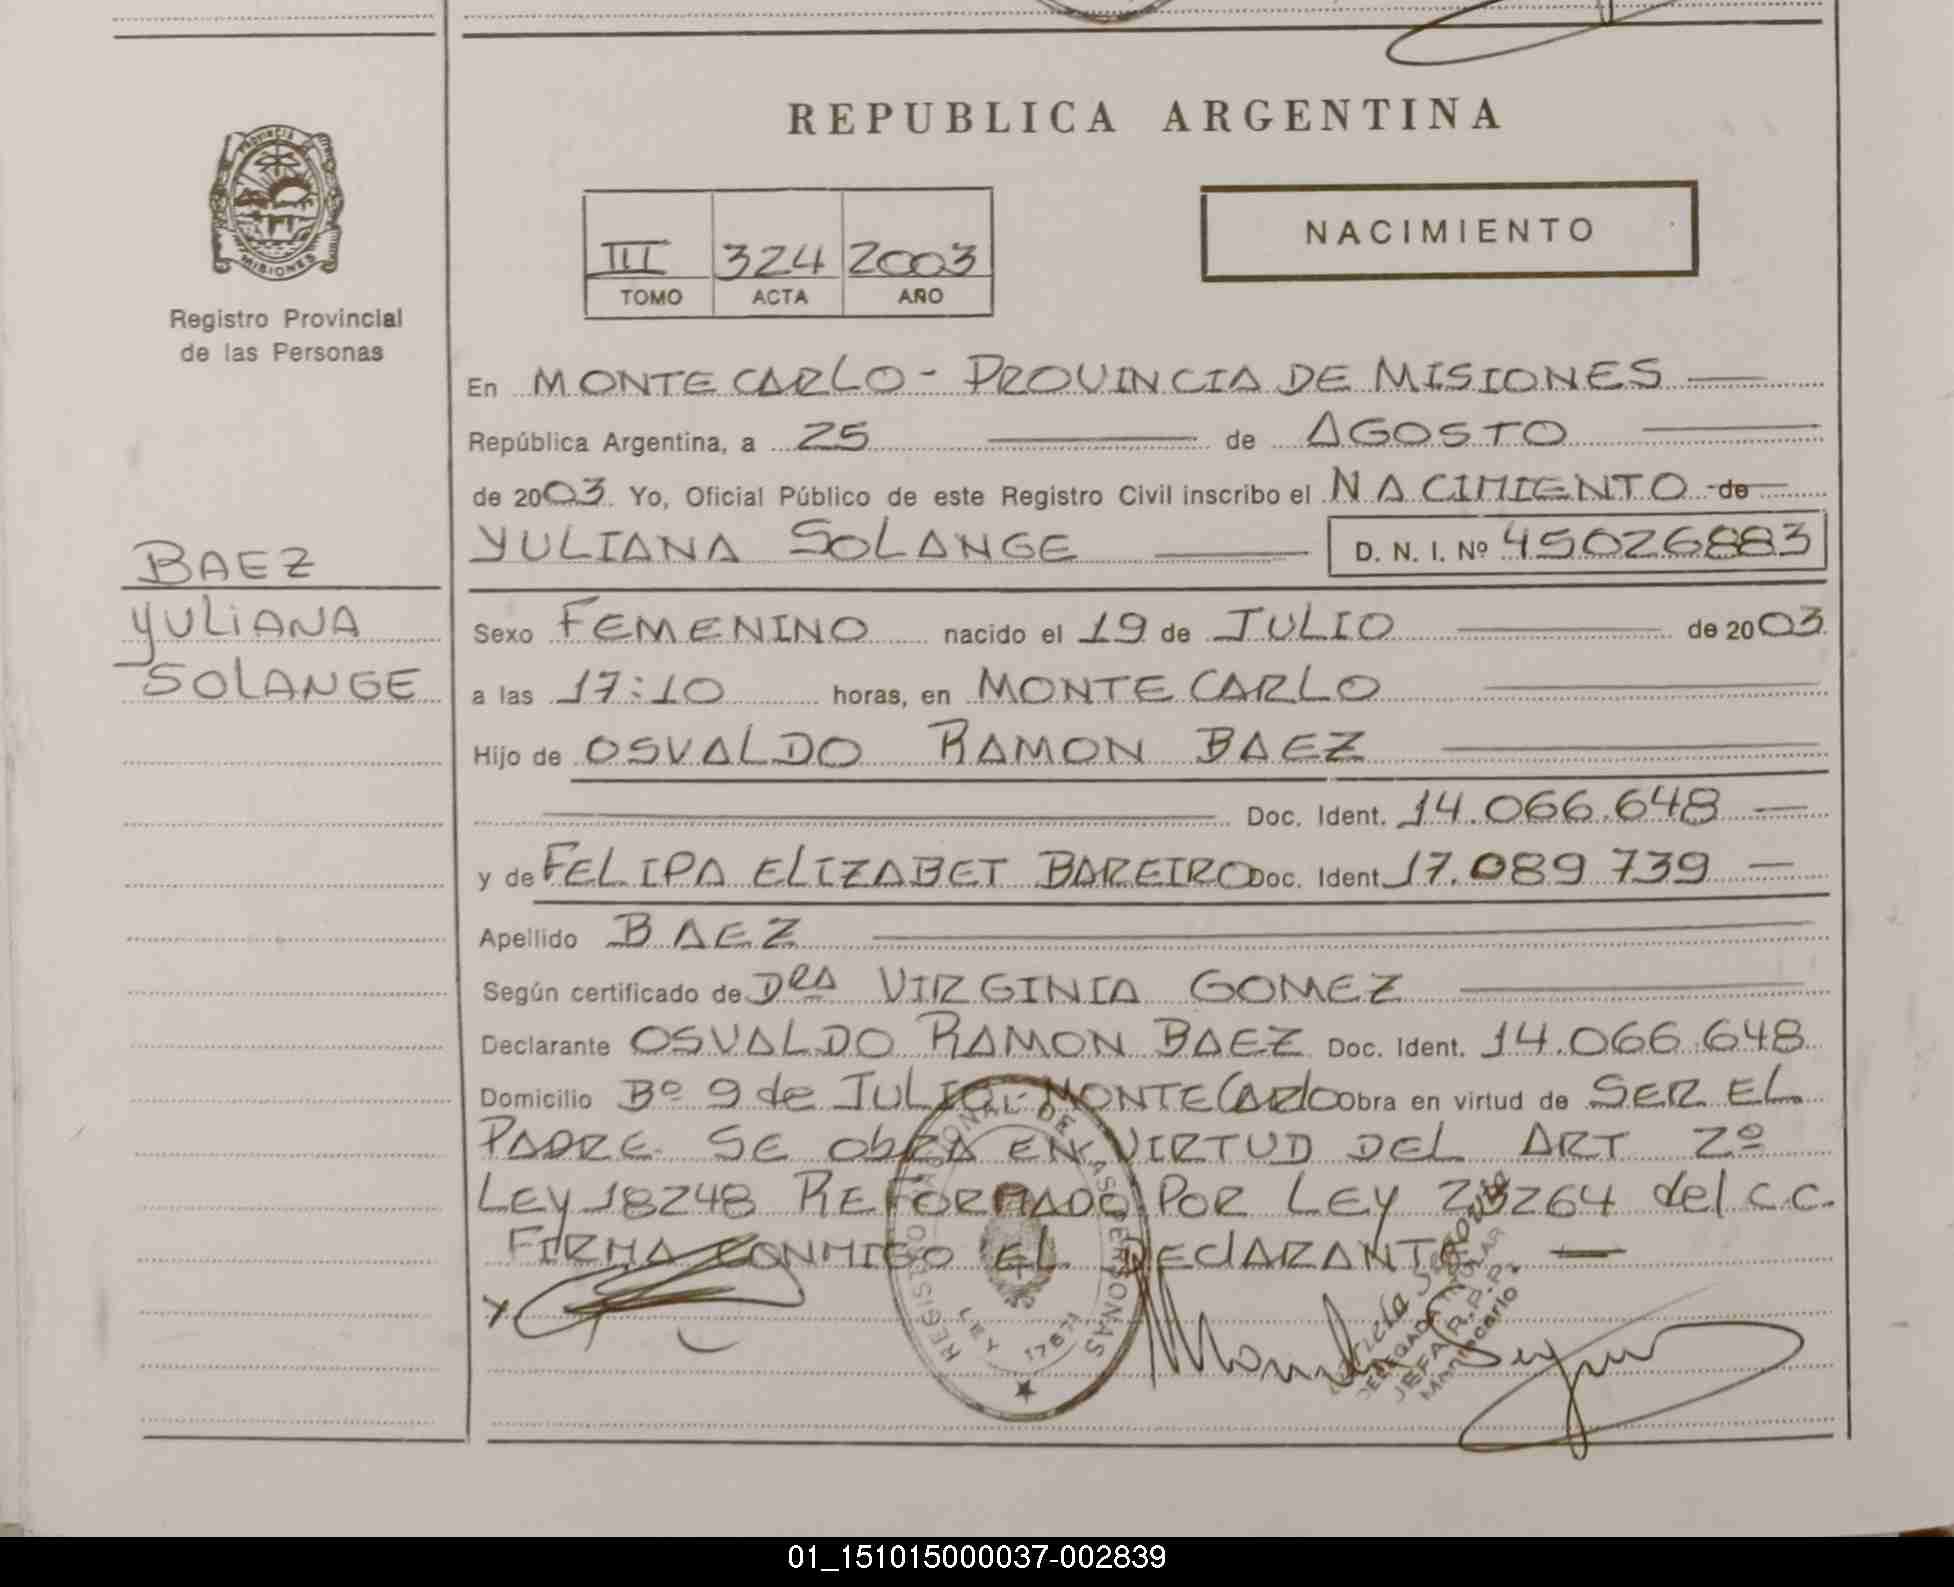 REPUBLICA ARGENTINA
PROVINCIA
MISIONES
Registro Provincial
de las Personas
NACIMIENTO
III 324 2003
TOMO ACTA AÑO
En MONTECARLO - PROVINCIA DE MISIONES
República Argentina, a 25 de AGOSTO
de 2003. Yo, Oficial Público de este Registro Civil inscribo el NACIMIENTO de
YULIANA SOLANGE D. N. I. Nº 45026883
BAEZ
YULIANA
SOLANGE
Sexo FEMENINO nacido el 19 de JULIO de 2003
a las 17:10 horas, en MONTECARLO
Hijo de OSVALDO RAMON BAEZ
Doc. Ident. 14.066.648
y de FELIPA ELIZABET BAREIRO Doc. Ident. 17.089 739
Apellido BAEZ
Según certificado de DRA VIRGINIA GOMEZ
Declarante OSVALDO RAMON BAEZ Doc. Ident. 14.066.648
Domicilio Bº 9 de JULIO - MONTECARLO obra en virtud de SER EL
PADRE. SE ObRA EN VIRTUD DEL ART 2º
LEY 18248 REFORMADO POR LEY 23264 del C.C.
FIRMA CONMIGO EL DECLARANTE
REGISTRO NACIONAL DE LAS PERSONAS
LEY 17671
DELEGADA TITULAR
JEFA R.P.P.
Montecarlo
01_151015000037-002839